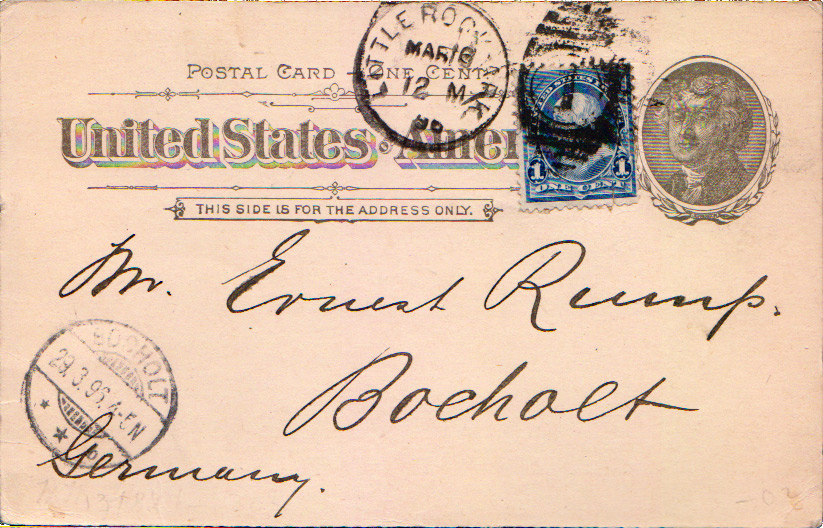 LITTLE ROCK, ARK.
MAR 16
12 M
96
POSTAL CARD – ONE CENT
United States
1 1
ONE CENT
THIS SIDE IS FOR THE ADDRESS ONLY.
Mr. Ernest Rump.
Bocholt
Germany.
BOCHOLT
29.3.96.4-5N